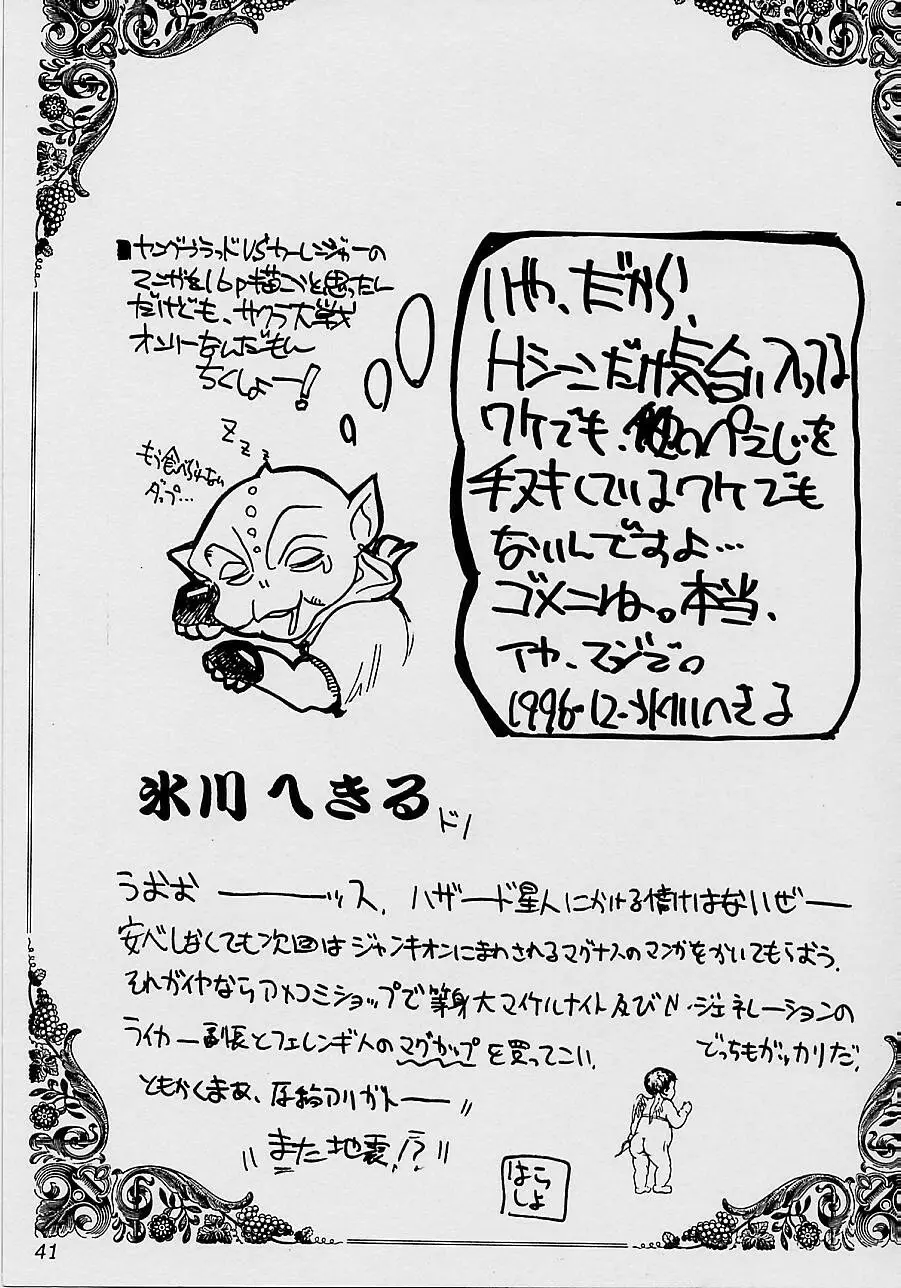 ■ヤングブラッドVSカーレンジャーの
マンガを16p描こうと思ったん
だけども、サクラ大戦
オンリーなんだもん
ちくしょー!
いや、だから、
Hシーンだけ気合い入ってる
ワケでも、他のぺえじを
手ヌキしているワケでも
ないんですよ…
ゴメンね。本当、
イヤ、マジで。
1996-12-氷川へきる
Z Z Z
もう食べられない
ダップ…
氷川へきる
ドノ
うおお―――ッス、ハザード星人にかける情けはないぜー
安べしなくても次回はジャンキオンにまわされるマグナスのマンガをかいてもらおう。
それがイヤならアメコミショップで等身大マイケルナイト及びN・ジェネレーションの
ライカー副長とフェレンギ人のマグカップを買ってこい。
でっちもガッカリだ。
ともかくまぁ、原稿アリガトーー〃
〃また地震!?〃
はら
しょ
41